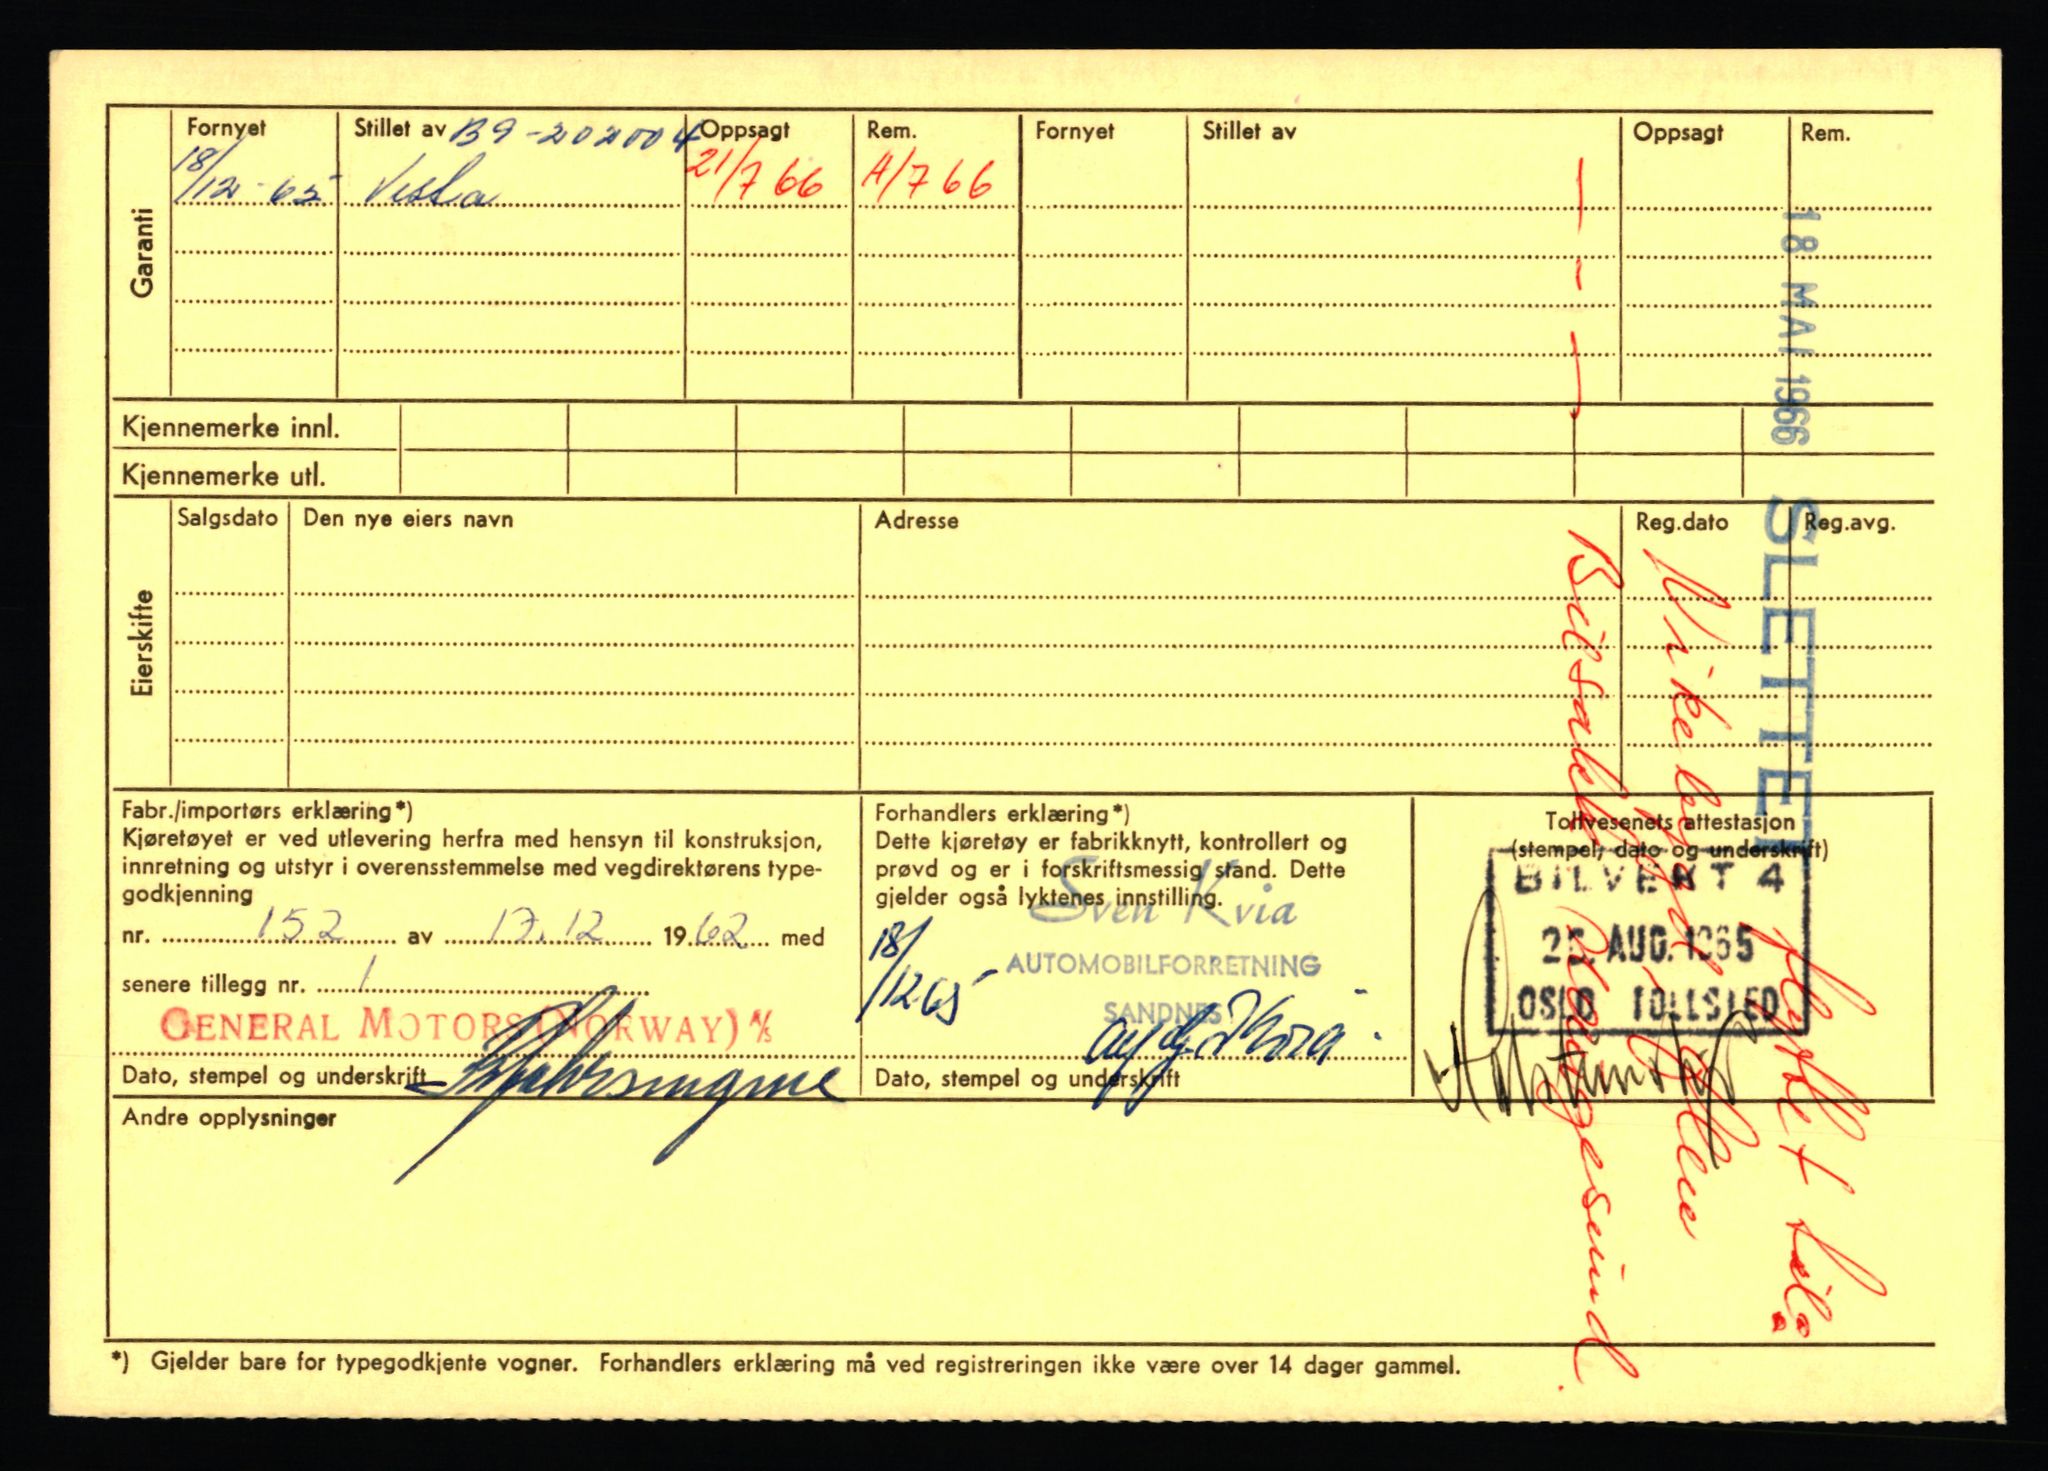 Garanti
Fornyet Stillet av B9-202004 Oppsagt Rem. Fornyet Stillet av Oppsagt Rem.
18/12-65 Vesta 21/7 66 A/7 66
18 MAI 1966
SLETTET
Kjennemerke innl.
Kjennemerke utl.
Eierskifte
Salgsdato Den nye eiers navn Adresse Reg.dato Reg.avg.
flyttet til:
Vikebygd
Bilsakk. Haugesund
Fabr./importørs erklæring*)
Kjøretøyet er ved utlevering herfra med hensyn til konstruksjon,
innretning og utstyr i overensstemmelse med vegdirektørens type-
godkjenning
nr. 152 av 17.12 1962 med
senere tillegg nr. 1
GENERAL MOTORS (NORWAY) A/S
Dato, stempel og underskrift
Forhandlers erklæring*)
Dette kjøretøy er fabrikknytt, kontrollert og
prøvd og er i forskriftsmessig stand. Dette
gjelder også lyktenes innstilling.
Sven Kvia
18/12 65
AUTOMOBILFORRETNING
SANDNES
Dato, stempel og underskrift
Tollvesenets attestasjon
(stempel, dato og underskrift)
BILVERT 4
25. AUG. 1965
OSLO TOLLSTED
Andre opplysninger
*) Gjelder bare for typegodkjente vogner. Forhandlers erklæring må ved registreringen ikke være over 14 dager gammel.